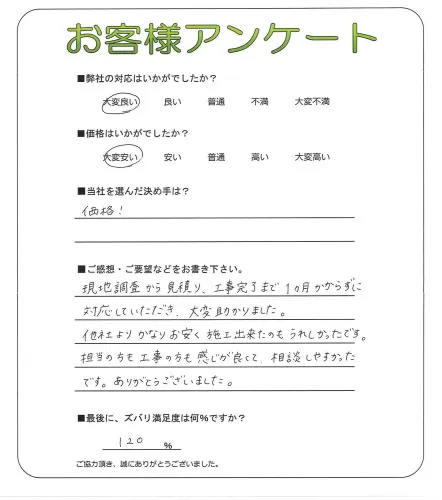 お客様アンケート
■弊社の対応はいかがでしたか？
大変良い 良い 普通 不満 大変不満
■価格はいかがでしたか？
大変安い 安い 普通 高い 大変高い
■当社を選んだ決め手は？
価格！
■ご感想・ご要望などをお書き下さい。
現地調査から見積り、工事完了まで1ヵ月かからずに
対応していただき、大変助かりました。
他社よりかなりお安く施工出来たのもうれしかったです。
担当の方も工事の方も感じが良くて、相談しやすかった
です。ありがとうございました。
■最後に、ズバリ満足度は何％ですか？
120 %
ご協力頂き、誠にありがとうございました。